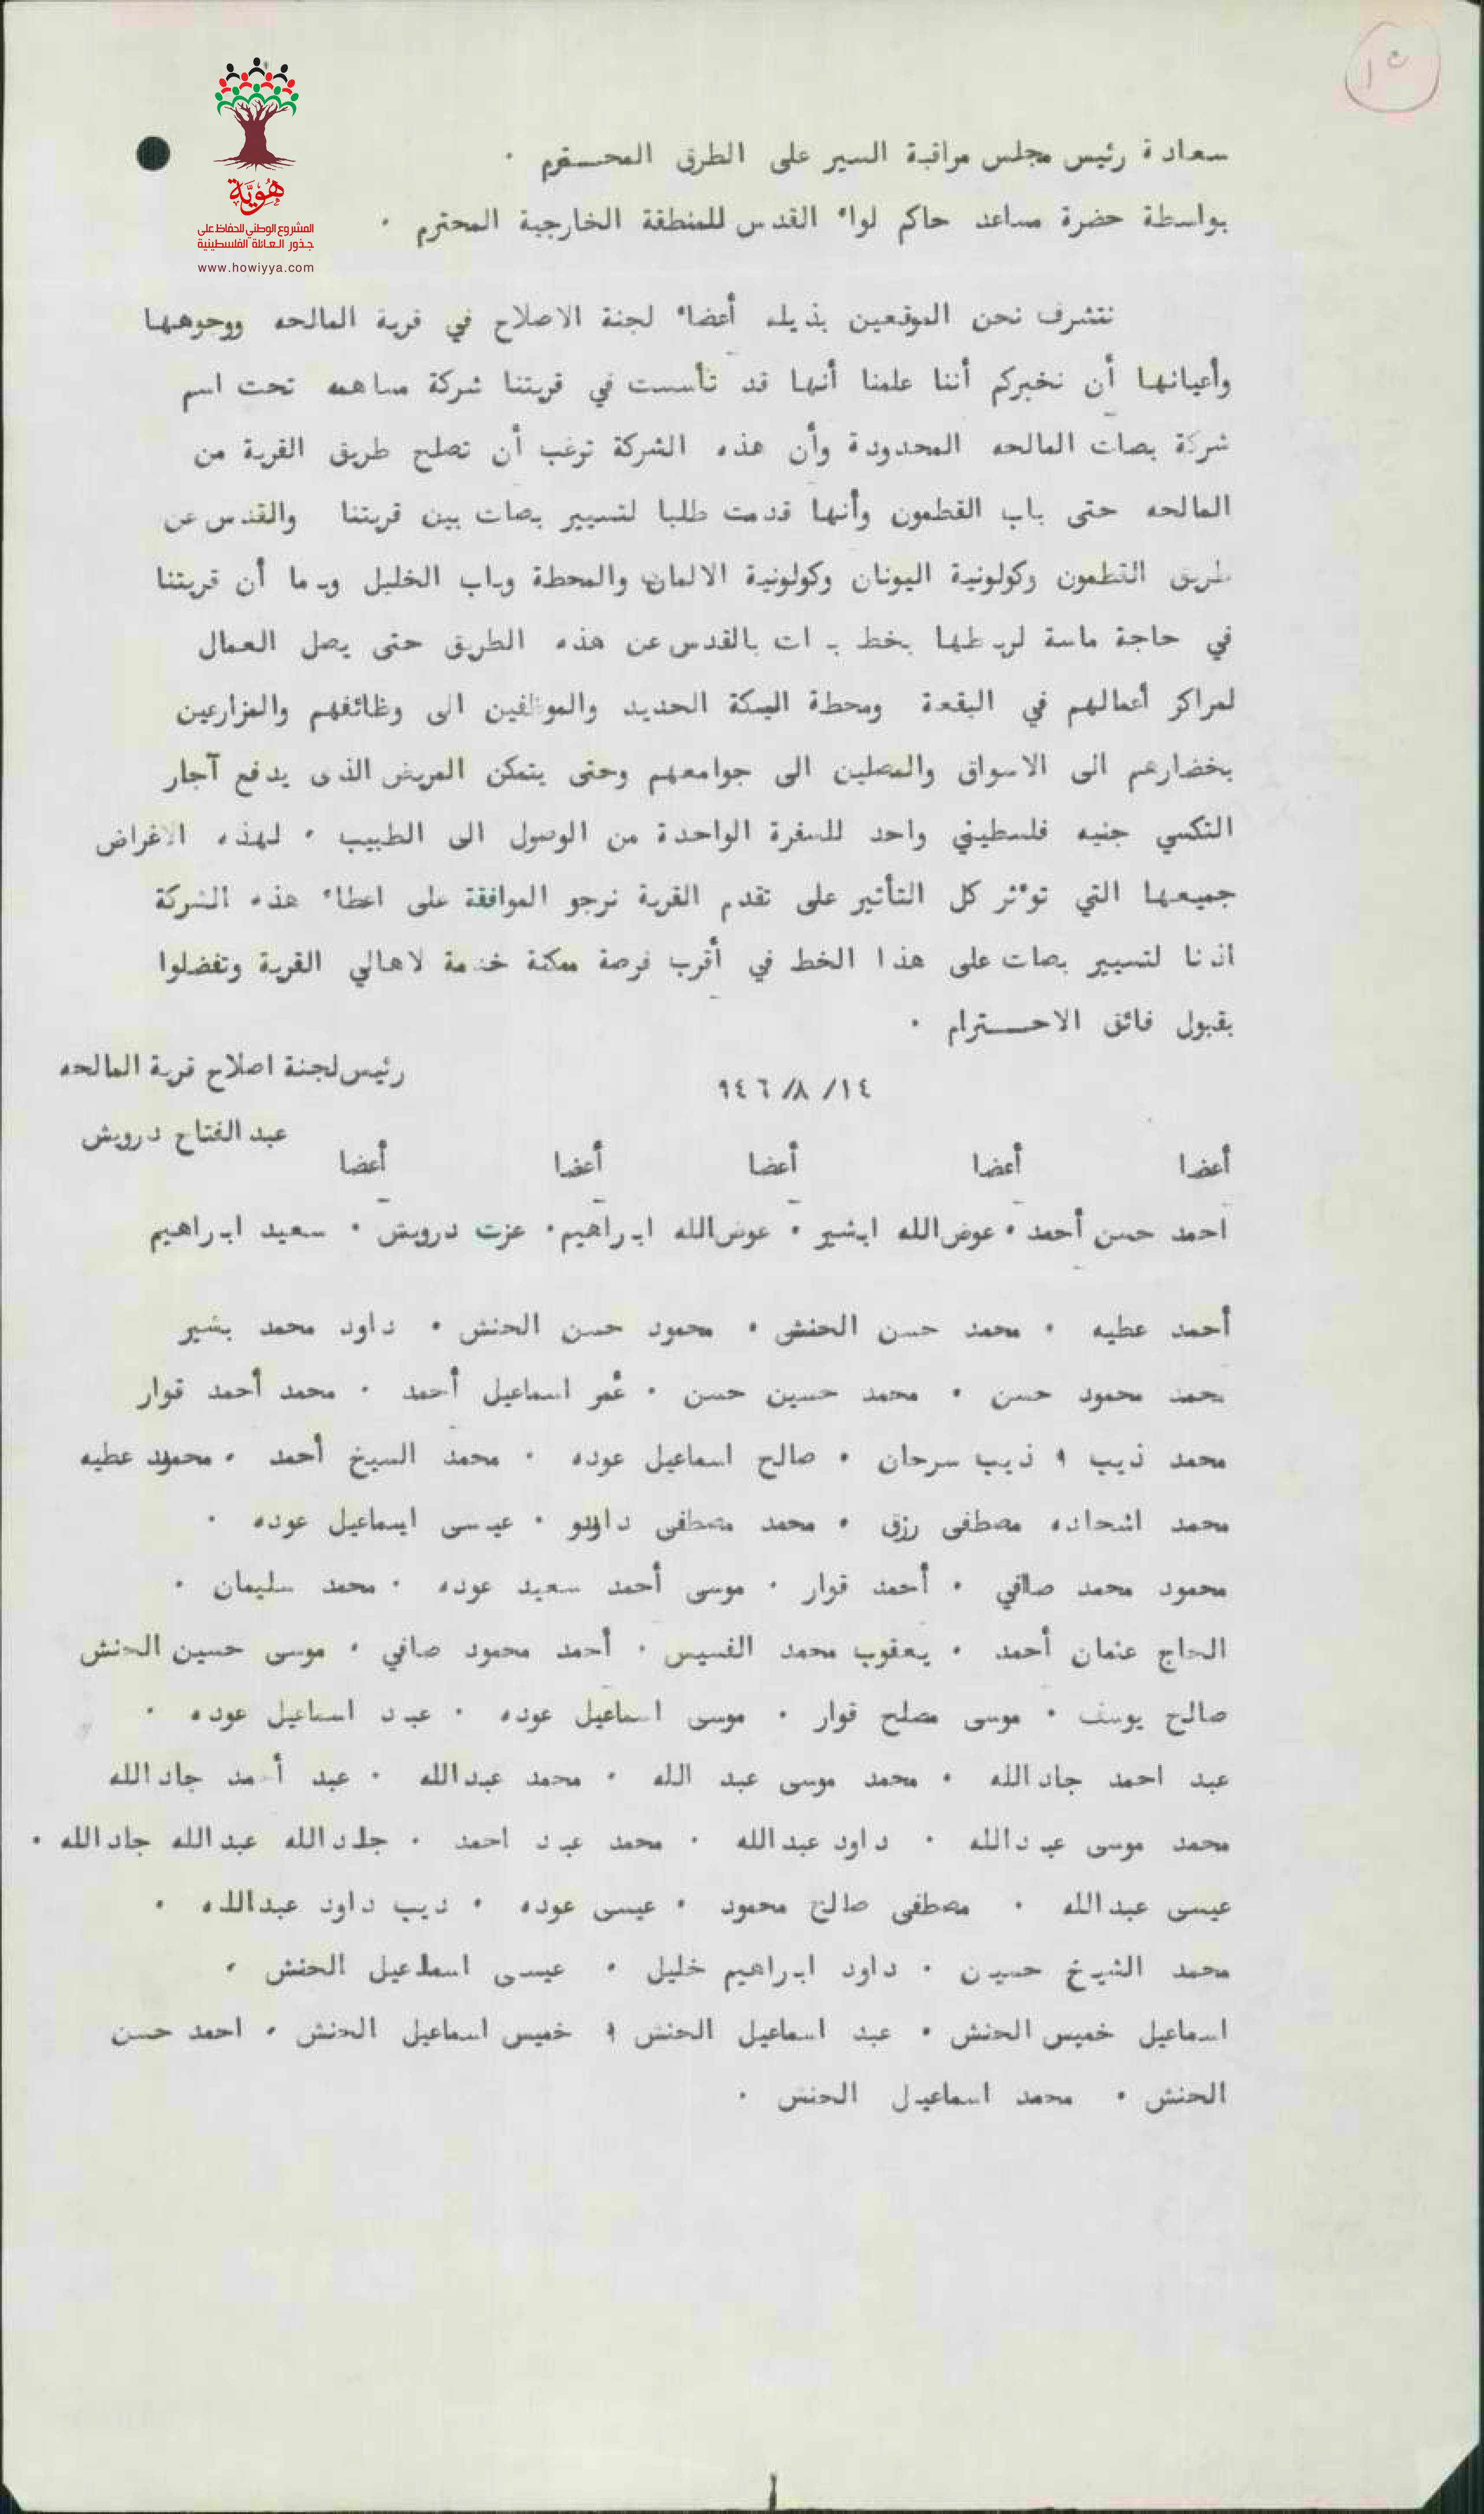 سعادة رئيس مجلس مراقبة السير على الطرق المحــترم ٠
بواسطة حضرة مساعد حاكم لواء القدس للمنطقة الخارجية المحترم ٠
هُوِيَّة
المشروع الوطني للحفاظ على
جذور العائلة الفلسطينية
www.howiyya.com
نتشرف نحن الموقعين بذيله أعضاء لجنة الاصلاح في قرية المالحه ووجوهها
وأعيانها أن نخبركم أننا علمنا أنها قد تأسست في قريتنا شركة مساهمه تحت اسم
شركة بصات المالحه المحدودة وأن هذه الشركة ترغب أن تصلح طريق القرية من
المالحه حتى باب القطمون وأنها قدمت طلبا لتسيير بصات بين قريتنا والقدس عن
طريق القطمون وكولونية اليونان وكولونية الالمان والمحطة وباب الخليل وبما أن قريتنا
في حاجة ماسة لربطها بخط بـ ات بالقدس عن هذه الطريق حتى يصل العمال
لمراكز أعمالهم في البقعة ومحطة السكة الحديد والموظفين الى وظائفهم والمزارعين
بخضارهم الى الاسواق والمصلين الى جوامعهم وحتى يتمكن المريض الذى يدفع آجار
التكسي جنيه فلسطيني واحد للسفرة الواحدة من الوصول الى الطبيب ٠ لهذه الاغراض
جميعها التي توءثر كل التأثير على تقدم القرية نرجو الموافقة على اعطاء هذه الشركة
اذنا لتسيير بصات على هذا الخط في أقرب فرصة ممكنة خدمة لاهالي القرية وتفضلوا
بقبول فائق الاحــترام ٠
رئيس لجنة اصلاح قرية المالحه
١٤/ ٨/ ٩٤٦
عبد الفتاح درويش
أعضا أعضا أعضا أعضا أعضا
احمد حسن أحمد ٠ عوض الله ابشير ٠ عوض الله ابراهيم ٠ عزت درويش ٠ سعيد ابراهيم
أحمد عطيه ٠ محمد حسن الحنش ٠ محمود حسن الحنش ٠ داود محمد بشير
محمد محمود حسن ٠ محمد حسين حسن ٠ عمر اسماعيل أحمد ٠ محمد أحمد قوار
محمد ذيب ٩ ذيب سرحان ٠ صالح اسماعيل عوده ٠ محمد السيخ أحمد ٠ محمود عطيه
محمد اشحاده مصطفى رزق ٠ محمد مصطفى ٠ عيسى ايسماعيل عوده ٠
محمود محمد صافي ٠ أحمد قوار ٠ موسى أحمد سعيد عوده ٠ محمد سليمان ٠
الحاج عثمان أحمد ٠ يعقوب محمد الفسيس ٠ أحمد محمود صافي ٠ موسى حسين الحنش
صالح يوسف ٠ موسى مصلح قوار ٠ موسى اسماعيل عوده ٠ عبد اسماعيل عوده ٠
عبد احمد جاد الله ٠ محمد موسى عبد الله ٠ محمد عبدالله ٠ عبد أحمد جاد الله
محمد موسى عبدالله ٠ داود عبدالله ٠ محمد عبد احمد ٠ جاد الله عبدالله جاد الله ٠
عيسى عبدالله ٠ مصطفى صالح محمود ٠ عيسى عوده ٠ ديب داود عبدالله ٠
محمد الشيخ حسين ٠ داود ابراهيم خليل ٠ عيسى اسماعيل الحنش ٠
اسماعيل خميس الحنش ٠ عبد اسماعيل الحنش ٩ خميس اسماعيل الحنش ٠ احمد حسن
الحنش ٠ محمد اسماعيل الحنش ٠